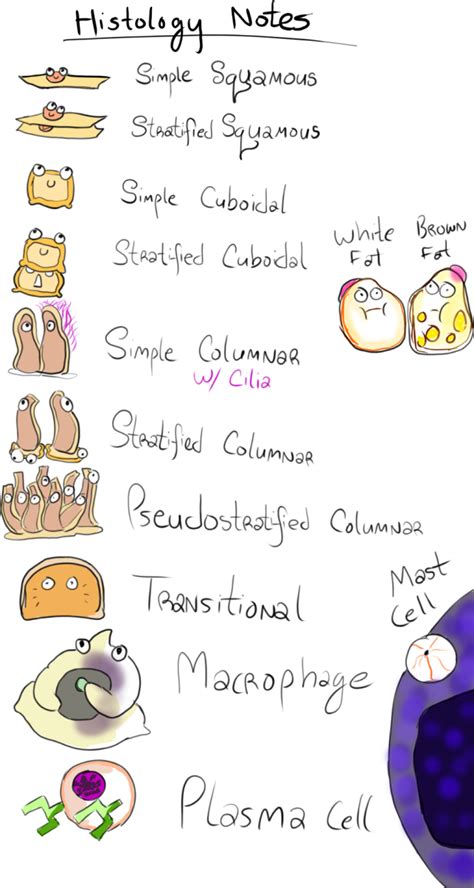 Histology Notes
Simple Squamous
Stratified Squamous
Simple Cuboidal
Stratified Cuboidal
White
Fat
Brown
Fat
Simple Columnar
w/ Cilia
Stratified Columnar
Pseudostratified Columnar
Transitional
Mast
Cell
Macrophage
Plasma Cell